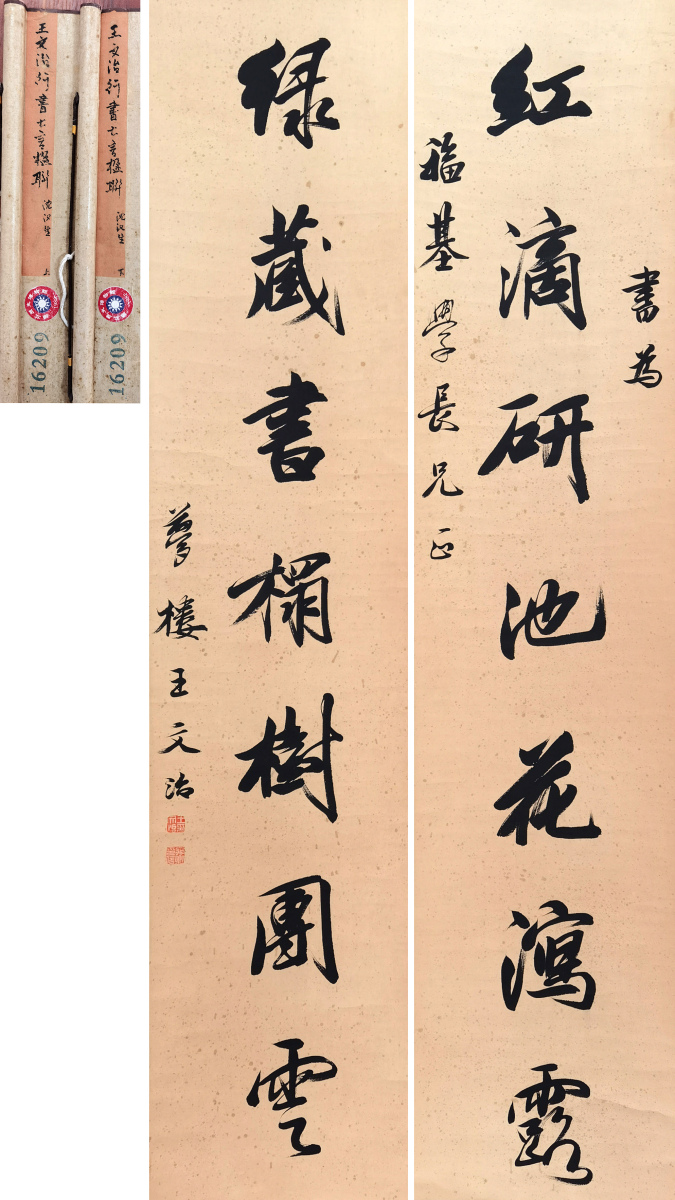 書為
紅滴研池花瀉露
福基學長兄正
緑藏書榻樹團雲
夢樓王文治
王文治行書七言楹聯 沈汉生 下
16209
王文治行書七言楹聯 沈汉生 上
16209